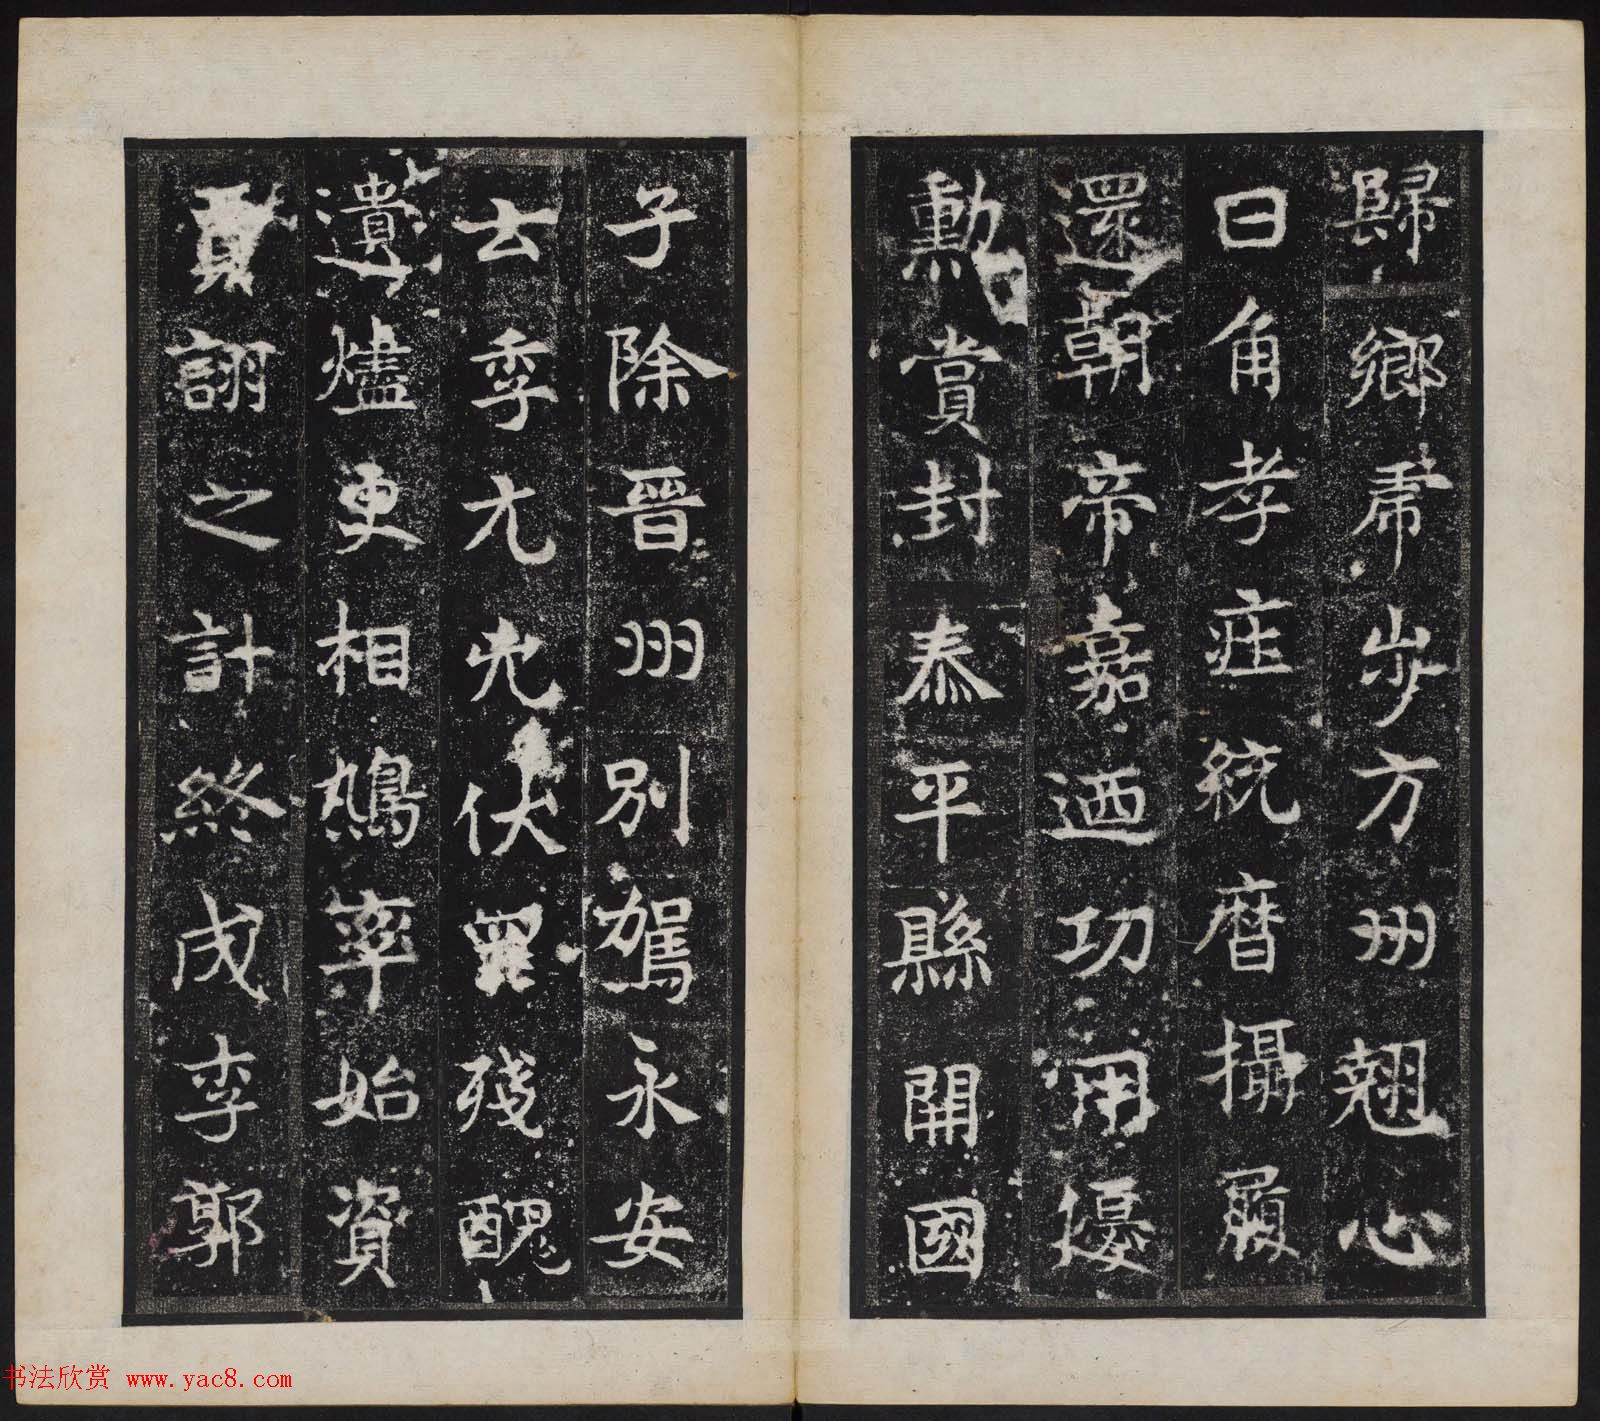 歸鄉虎步方州翹心
日角孝莊統曆攝
還朝帝嘉迺功用優
勳賞封泰平縣開國
子除晉州別駕永安
云季元兇伏罪殘醜
遺燼更相鳩率始資
賈詡之計終成李郭
书法欣赏 www.yac8.com